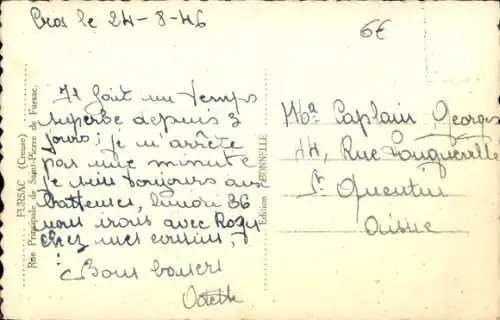 Cros le 24-8-46
6€
Il fait un temps
superbe depuis 3
jours; je n'arrête
pas une minute
je suis toujours aux
batteuses, lundi 26
nous irons avec Roger
chez mes cousins,
Bons baisers
Odette
FURSAC (Creuse)
Rue Principale de Saint-Pierre de Fursac.
Edition BONNELLE
Caplain Georges
44, Rue Longueville
St Quentin
Aisne